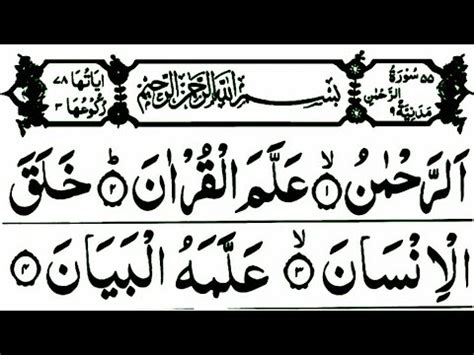 ۵۵ سُوْرَةُ الرَّحْمٰنِ مَدَنِيَّةٌ ۹
بِسْمِ اللّٰهِ الرَّحْمٰنِ الرَّحِيْمِ
اٰيَاتُهَا ۷۸
رُكُوْعُهَا ۳
اَلرَّحْمٰنُ ۙ﴿۱﴾ عَلَّمَ الْقُرْاٰنَ ؕ﴿۲﴾ خَلَقَ
الْاِنْسَانَ ۙ﴿۳﴾ عَلَّمَهُ الْبَيَانَ ﴿۴﴾